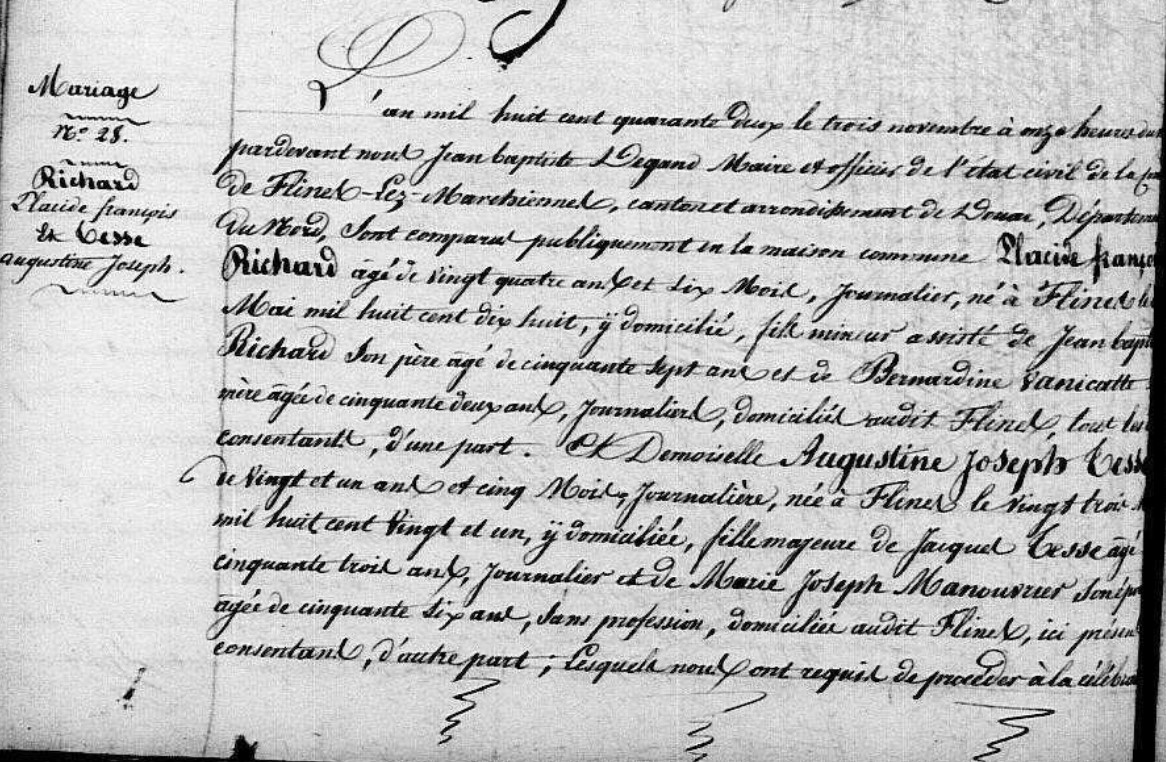 Mariage
N.° 28.
Richard
Placide françois
Et Tesse
Augustine Joseph.
L'an mil huit cent quarante deux le trois novembre à onze heures du
pardevant nous Jean baptiste Degand Maire et officier de l'état civil de la
de Flines-Lez-Marchiennes, canton et arrondissement de Douai, Départeme
du Nord, Sont comparus publiquement en la maison commune Placide franço
Richard âgé de vingt quatre ans et six Mois, Journalier, né à Flines le
Mai mil huit cent dix huit, ÿ domicilié, fils mineur assisté de Jean bapt
Richard Son père âgé de cinquante sept ans et de Bernardine Vanicatte
mère âgée de cinquante deux ans, Journaliers, domiciliés audit Flines, tous les
consentants, d'une part. Et Demoiselle Augustine Joseph Tesse
de vingt et un ans et cinq Mois, Journalière, née à Flines le vingt trois
mil huit cent vingt et un, ÿ domiciliée, fille majeure de Jacques Tesse âgé
cinquante trois ans, Journalier et de Marie Joseph Manouvrier Son épo
âgée de cinquante six ans, Sans profession, domiciliés audit Flines, ici présen
consentans, d'autre part ; Lesquels nous ont requis de procéder à la célébra